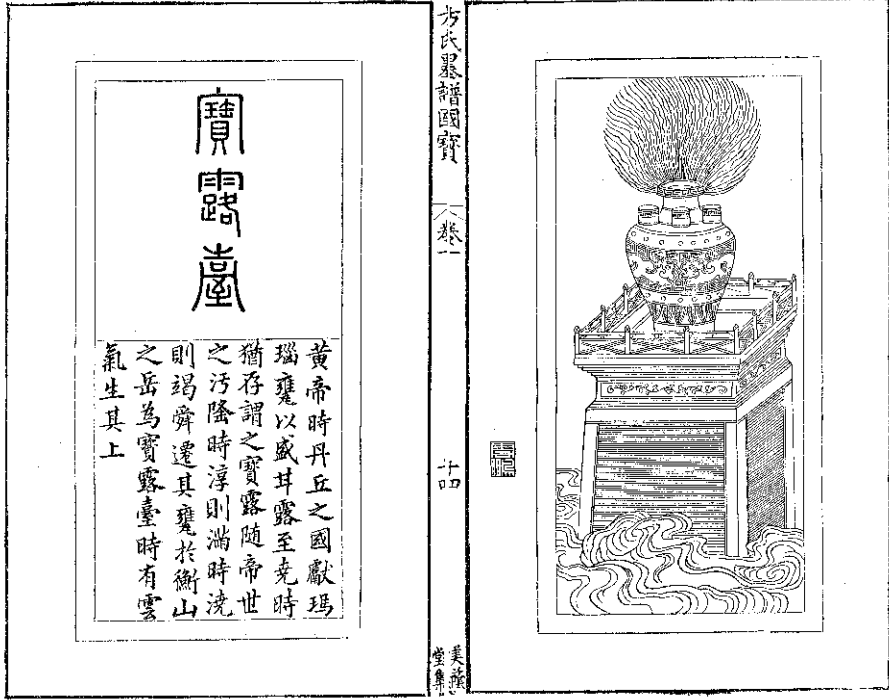 方氏墨譜國寶
卷一
十四
美蔭
堂集
寶露臺
黃帝時丹丘之國獻瑪
瑙甕以盛甘露至堯時
猶存謂之寶露随帝世
之汚隆時淳則滿時澆
則竭舜遷其甕於衡山
之岳為寶露臺時有雲
氣生其上